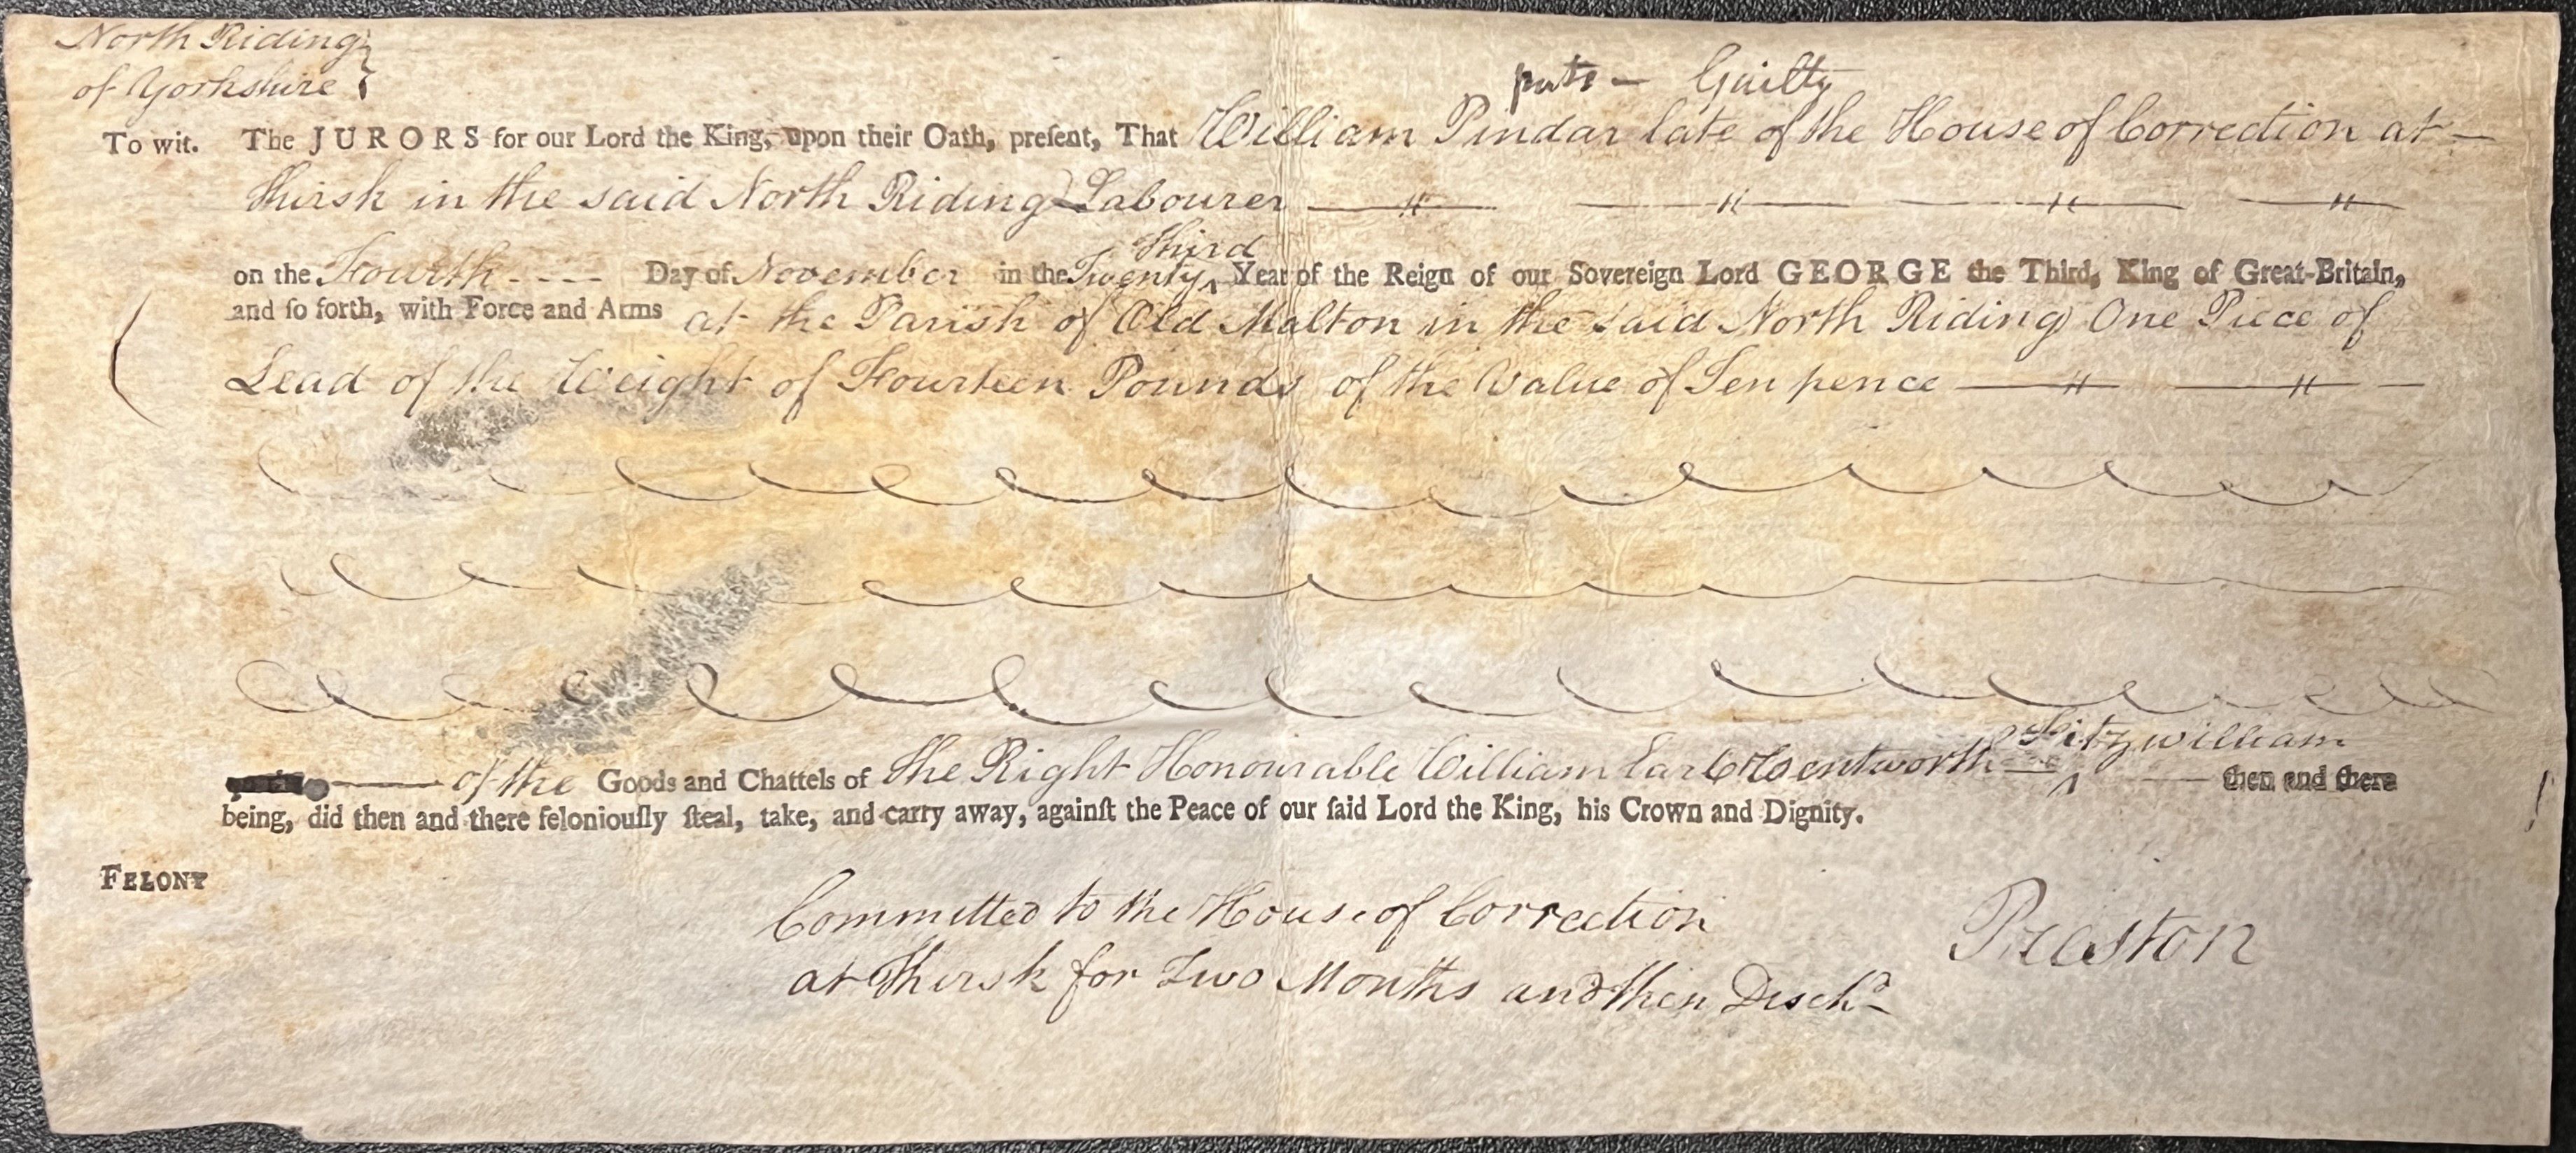 North Riding
of Yorkshire
puts — Guilty
To wit. The JURORS for our Lord the King, upon their Oath, preſent, That William Pindar late of the House of Correction at —
Thirsk in the said North Riding Labourer
on the Fourth - - - - Day of November in the Twenty ‸ Third Year of the Reign of our Sovereign Lord GEORGE the Third, King of Great-Britain,
and ſo forth, with Force and Arms at the Parish of Old Malton in the said North Riding One Piece of
Lead of the Weight of Fourteen Pounds of the Value of Ten pence
of the Goods and Chattels of the Right Honourable William Earl Wentworth ‸ Fitzwilliam — then and there
being, did then and there feloniouſly ſteal, take, and carry away, againſt the Peace of our ſaid Lord the King, his Crown and Dignity.
FELONY
Committed to the House of Correction
at Thirsk for Two Months and then Disch.d
Preston